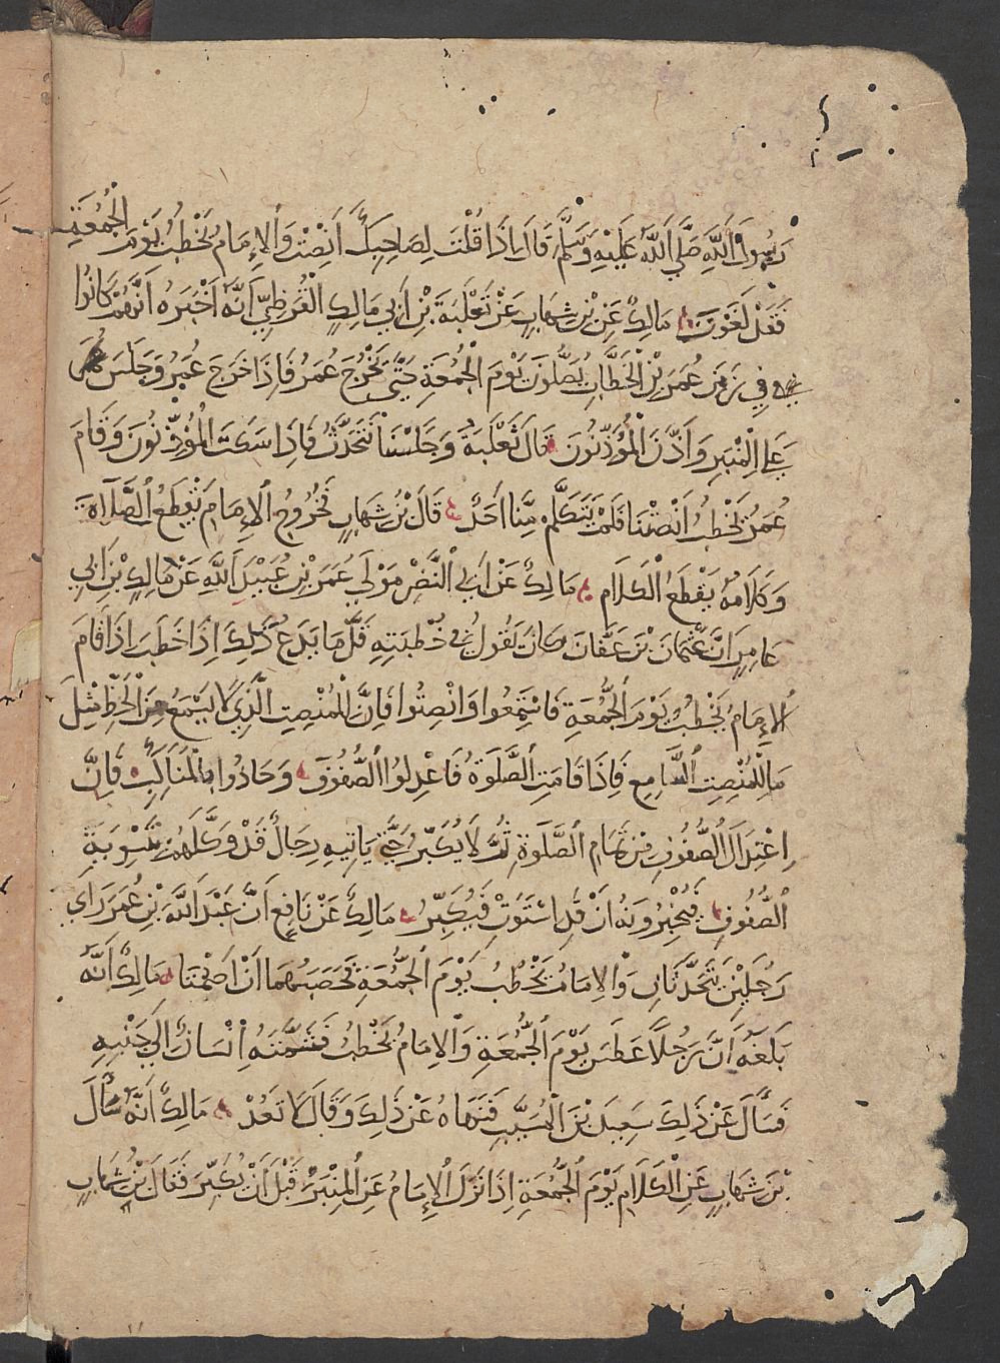 رَسُولَ اَللَّهِ صَلَّي اَللَّهُ عَلَيْهِ وَسَلَّمَ قَالَ اِذَا قُلْتَ لِصَاحِبِكَ اَنْصِتْ وَالاِمَامُ يَخْطُبُ يَوْمَ الْجُمُعَةِ
فَقَدْ لَغَوْتَ مَالِكٌ عَنِ بْنِ شِهَابٍ عَنْ ثَعْلَبَةَ بْنِ اَبِي مَالِكٍ الْقُرَظِيِّ اَنَّهُ اَخْبَرَهُ اَنَّهُمْ كَانُوا
فِي زَمَنِ عُمَرَ بْنِ الْخَطَّابِ يُصَلُّونَ يَوْمَ الْجُمُعَةِ حَتَّي يَخْرُجَ عُمَرُ فَاِذَا خَرَجَ عُمَرُ وَجَلَسَ
عَلَي الْمِنْبَرِ وَاَذَّنَ الْمُؤَذِّنُونَ قَالَ ثَعْلَبَةُ وَجَلَسْنَا نَتَحَدَّثُ فَاِذَا سَكَتَ الْمُؤَذِّنُونَ وَقَامَ
عُمَرُ يَخْطُبُ اَنْصَتْنَا فَلَمْ يَتَكَلَّمْ مِنَّا اَحَدٌ قَالَ بْنُ شِهَابٍ فَخُرُوجُ اَلاِمَامِ يَقْطَعُ اَلصَّلَاةَ
وَكَلَامُهُ يَقْطَعُ اَلْكَلَامَ مَالِكٌ عَنْ اَبِي اَلنَّضْرِ مَوْلَي عُمَرَ بْنِ عُبَيْدِ اَللَّهِ عَنْ مَالِكِ بْنِ اَبِي
عَامِرٍ اَنَّ عُثْمَانَ بْنَ عَفَّانَ كَانَ يَقُولُ فِي خُطْبَتِهِ قَلَّ مَا يَدَعُ ذَلِكَ اِذَا خَطَبَ اِذَا قَامَ
اَلاِمَامُ يَخْطُبُ يَوْمَ اَلْجُمُعَةِ فَاسْتَمِعُوا وَاَنْصِتُوا فَاِنَّ لِلْمُنْصِتِ الَّذِي لَا يَسْمَعُ مِنَ الْحَظِّ مِثْلَ
مَا لِلْمُنْصِتِ اَلسَّامِعِ فَاِذَا قَامَتِ اَلصَّلَوةُ فَاعْدِلُوا اَلصُّفُوفَ وَحَاذُوا بِالْمَنَاكِبِ فَاِنَّ
اِعْتِدَالَ اَلصُّفُوفِ مِنْ تَمَامِ اَلصَّلَوةِ ثُمَّ لَا يُكَبِّرُ حَتَّي يَاتِيهِ رِجَالٌ قَدْ وَكَّلَهُمْ بِتَسْوِيَةِ
اَلصُّفُوفِ فَيُخْبِرُونَهُ اَنْ قَدِ اسْتَوَتْ فَيُكَبِّرُ مَالِكٌ عَنْ نَافِعٍ اَنَّ عَبْدَ اَللَّهِ بْنَ عُمَرَ رَاَي
رَجُلَيْنِ يَتَحَدَّثَانِ وَالاِمَامُ يَخْطُبُ يَوْمَ اَلْجُمُعَةِ فَحَصَبَهُمَا اَنْ اَصْمُتَا مَالِكٌ اَنَّهُ
بَلَغَهُ اَنَّ رَجُلًا عَطَسَ يَوْمَ اَلْجُمُعَةِ وَالاِمَامُ يَخْطُبُ فَشَمَّتَهُ اِنْسَانٌ اِلَي جَنْبِهِ
فَسَاَلَ عَنْ ذَلِكَ سَعِيدَ بْنَ الْمُسَيَّبِ فَنَهَاهُ عَنْ ذَلِكَ وَقَالَ لَا تَعُدْ مَالِكٌ اَنَّهُ سَاَلَ
بْنَ شِهَابٍ عَنِ الْكَلَامِ يَوْمَ اَلْجُمُعَةِ اِذَا نَزَلَ اَلاِمَامُ عَنِ اَلْمِنْبَرِ قَبْلَ اَنْ يُكَبِّرَ فَقَالَ بْنُ شِهَابٍ